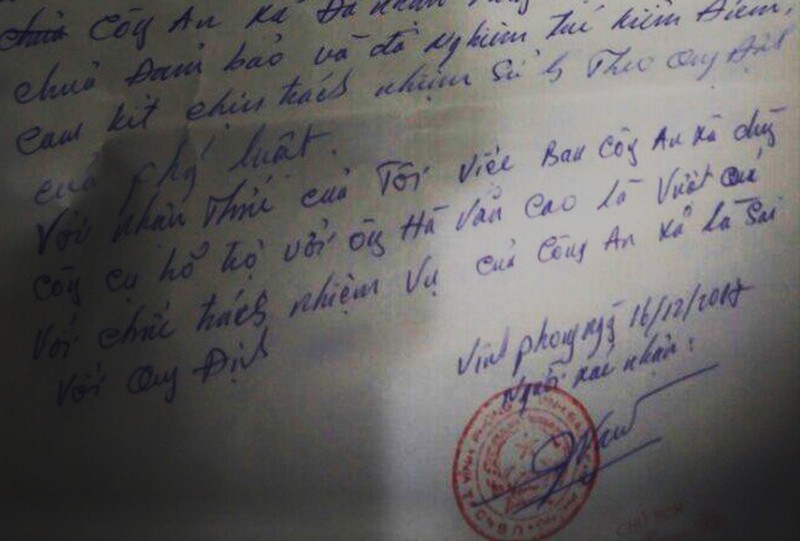 Công An xã Đã nhận
chưa Đảm bảo và đã nghiêm túc kiểm Điểm,
Cam kết chịu trách nhiệm Theo Quy Định
của luật.
Với nhận Thức của Tôi việc Ban Công An xã dùng
công cụ hổ trợ với ông Hà Văn Cao là Vượt quá
Với chức trách nhiệm vụ của Công An xã là Sai
Với Quy Định
Vĩnh phong ngày 16/12/2017
Người xác nhận:
CHỦ TỊCH